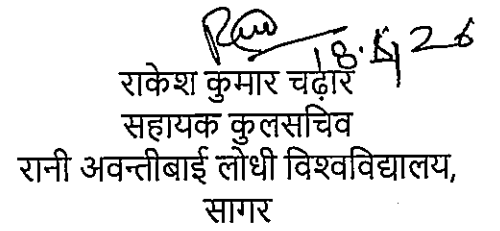 राकेश कुमार चढ़ार
सहायक कुलसचिव
रानी अवन्तीबाई लोधी विश्वविद्यालय,
सागर